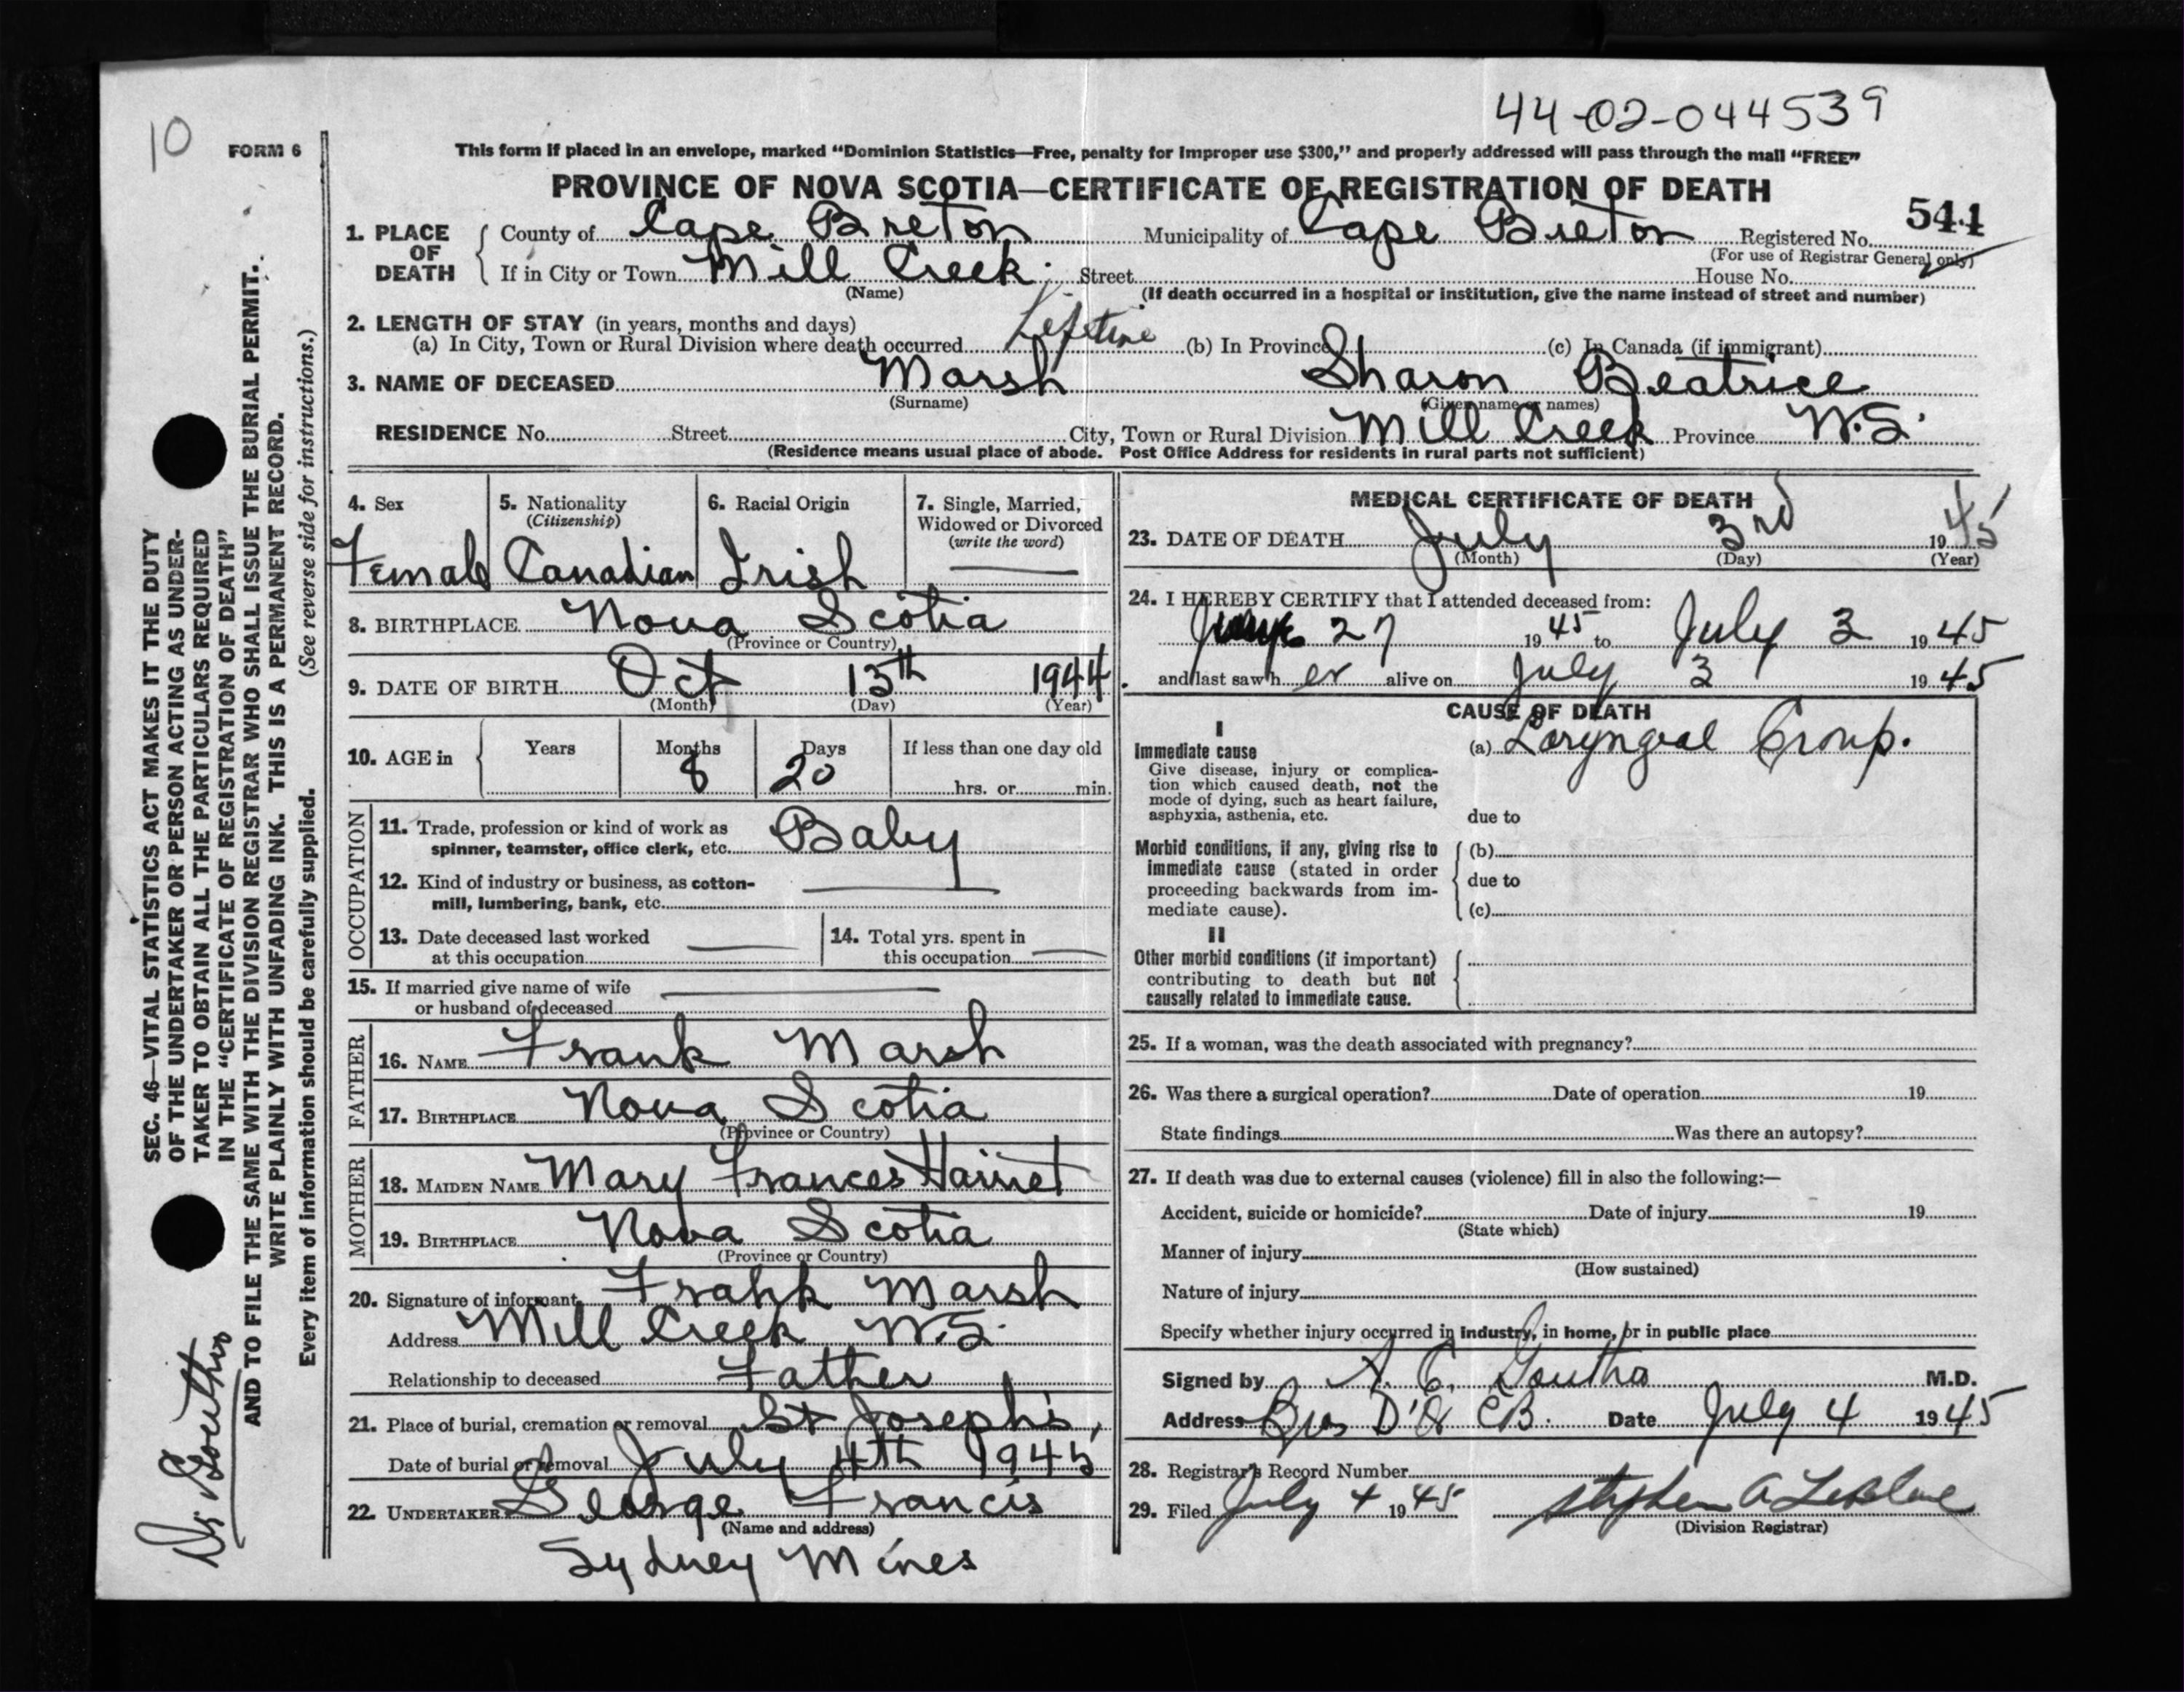 44-02-044539
10
FORM 6
This form if placed in an envelope, marked “Dominion Statistics—Free, penalty for improper use $300,” and properly addressed will pass through the mail “FREE”
PROVINCE OF NOVA SCOTIA—CERTIFICATE OF REGISTRATION OF DEATH
544
1. PLACE OF DEATH
County of Cape Breton Municipality of Cape Breton Registered No.
(For use of Registrar General only)
If in City or Town Mill Creek. Street House No.
(Name) (If death occurred in a hospital or institution, give the name instead of street and number)
2. LENGTH OF STAY (in years, months and days)
(a) In City, Town or Rural Division where death occurred Lifetime (b) In Province (c) In Canada (if immigrant)
3. NAME OF DECEASED Marsh Sharon Beatrice
(Surname) (Given name or names)
RESIDENCE No. Street City, Town or Rural Division Mill Creek Province N.S.
(Residence means usual place of abode. Post Office Address for residents in rural parts not sufficient)
4. Sex 5. Nationality 6. Racial Origin 7. Single, Married,
(Citizenship) Widowed or Divorced
(write the word)
Female Canadian Irish
8. BIRTHPLACE Nova Scotia
(Province or Country)
9. DATE OF BIRTH Oct 13th 1944
(Month) (Day) (Year)
10. AGE in Years Months Days If less than one day old
8 20 hrs. or min.
OCCUPATION
11. Trade, profession or kind of work as
spinner, teamster, office clerk, etc. Baby
12. Kind of industry or business, as cotton-
mill, lumbering, bank, etc.
13. Date deceased last worked 14. Total yrs. spent in
at this occupation this occupation
15. If married give name of wife
or husband of deceased
FATHER
16. NAME Frank Marsh
17. BIRTHPLACE Nova Scotia
(Province or Country)
MOTHER
18. MAIDEN NAME Mary Frances
19. BIRTHPLACE Nova Scotia
(Province or Country)
20. Signature of informant Frank Marsh
Address Mill Creek N.S.
Relationship to deceased Father
21. Place of burial, cremation or removal St Joseph's
Date of burial or removal July 4th 1945
22. UNDERTAKER George Francis
(Name and address)
Sydney Mines
MEDICAL CERTIFICATE OF DEATH
23. DATE OF DEATH July 3rd 1945
(Month) (Day) (Year)
24. I HEREBY CERTIFY that I attended deceased from:
27 1945 to July 3 1945
and last saw her alive on July 3 1945
CAUSE OF DEATH
I
Immediate cause (a) Laryngeal Croup.
Give disease, injury or complica-
tion which caused death, not the
mode of dying, such as heart failure,
asphyxia, asthenia, etc. due to
Morbid conditions, if any, giving rise to (b)
immediate cause (stated in order
proceeding backwards from im- due to
mediate cause). (c)
II
Other morbid conditions (if important)
contributing to death but not
causally related to immediate cause.
25. If a woman, was the death associated with pregnancy?
26. Was there a surgical operation? Date of operation 19
State findings Was there an autopsy?
27. If death was due to external causes (violence) fill in also the following:—
Accident, suicide or homicide? Date of injury 19
(State which)
Manner of injury
(How sustained)
Nature of injury
Specify whether injury occurred in industry, in home, or in public place
Signed by A. C. Gouthro M.D.
Address Bras D'Or CB. Date July 4 1945
28. Registrar's Record Number
29. Filed July 4 1945 Stephen A LeBlanc
(Division Registrar)
SEC. 46—VITAL STATISTICS ACT MAKES IT THE DUTY
OF THE UNDERTAKER OR PERSON ACTING AS UNDER-
TAKER TO OBTAIN ALL THE PARTICULARS REQUIRED
IN THE “CERTIFICATE OF REGISTRATION OF DEATH”
AND TO FILE THE SAME WITH THE DIVISION REGISTRAR WHO SHALL ISSUE THE BURIAL PERMIT.
WRITE PLAINLY WITH UNFADING INK. THIS IS A PERMANENT RECORD.
Every item of information should be carefully supplied. (See reverse side for instructions.)
Dr Gouthro